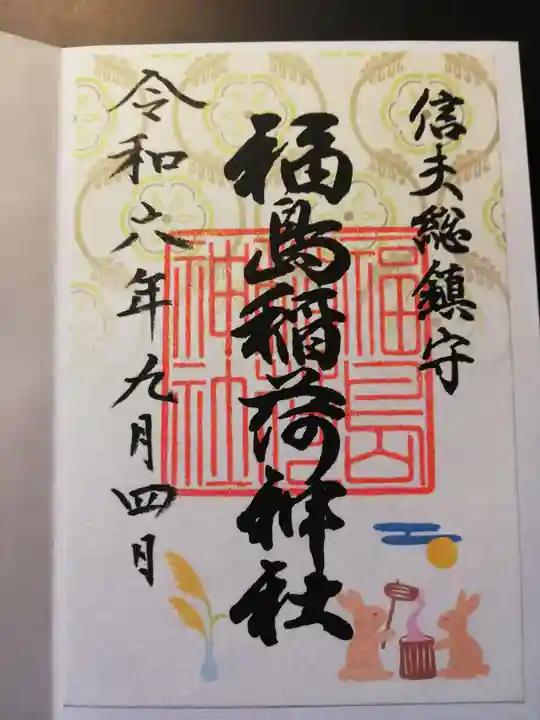 信夫総鎮守
福島稲荷神社
福島稲荷神社
令和六年九月四日